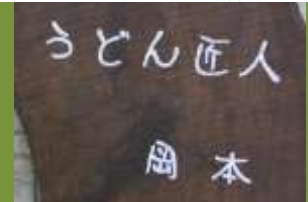 うどん匠人
岡本